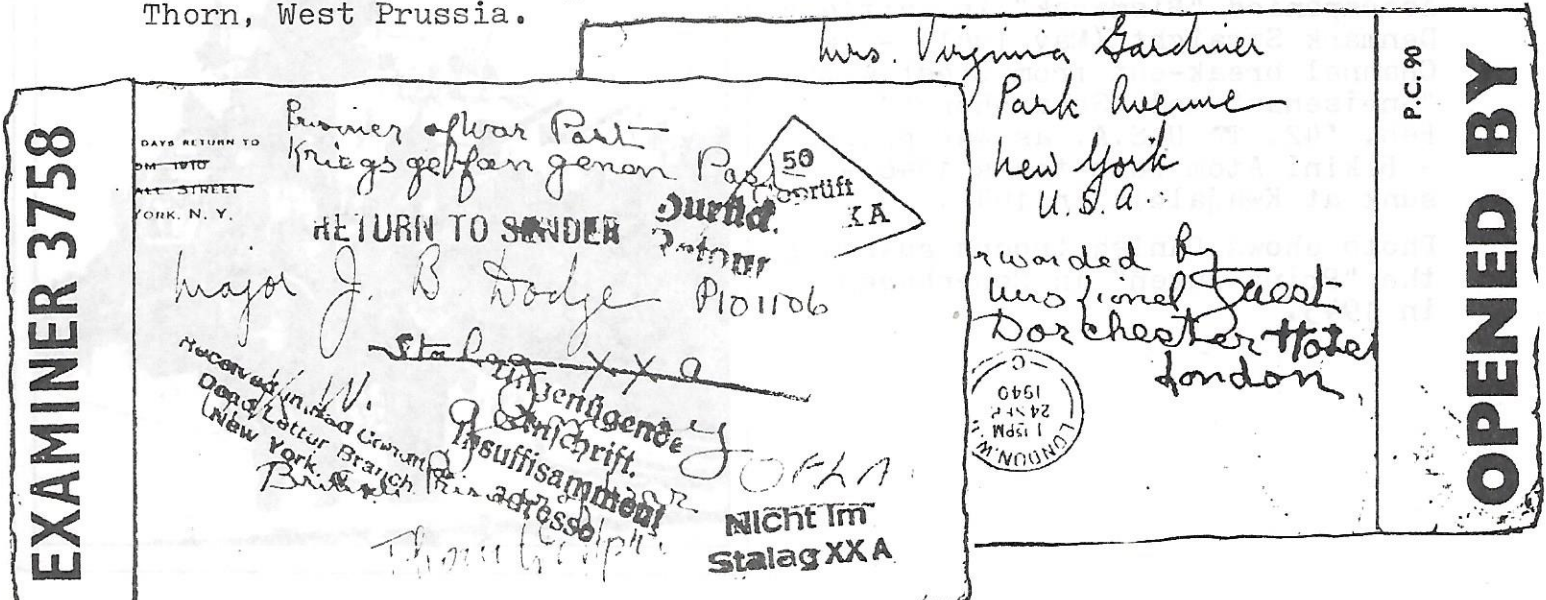 Thorn, West Prussia.
EXAMINER 3758
DAYS RETURN TO
1010
STREET
YORK, N. Y.
Prisoner of War Post
Kriegsgefangenen
50
Geprüft
XA
RETURN TO SENDER
Zurück.
Retour
Major J. B Dodge P101106
Stalag XX a
Germany
British Prisoner
Received in bad Condition
Dead Letter Branch
New York.
Ungenügende
Anschrift.
Insuffisamment
adresse
Nicht im
Stalag XX A
Mrs. Virginia Gardiner
Park Avenue
New York
U.S.A
rwarded by
Mrs Lionel Guest
Dorchester Hotel
London
LONDON.W.
1 15PM
24 SEP
1940
C
P.C. 90
OPENED BY